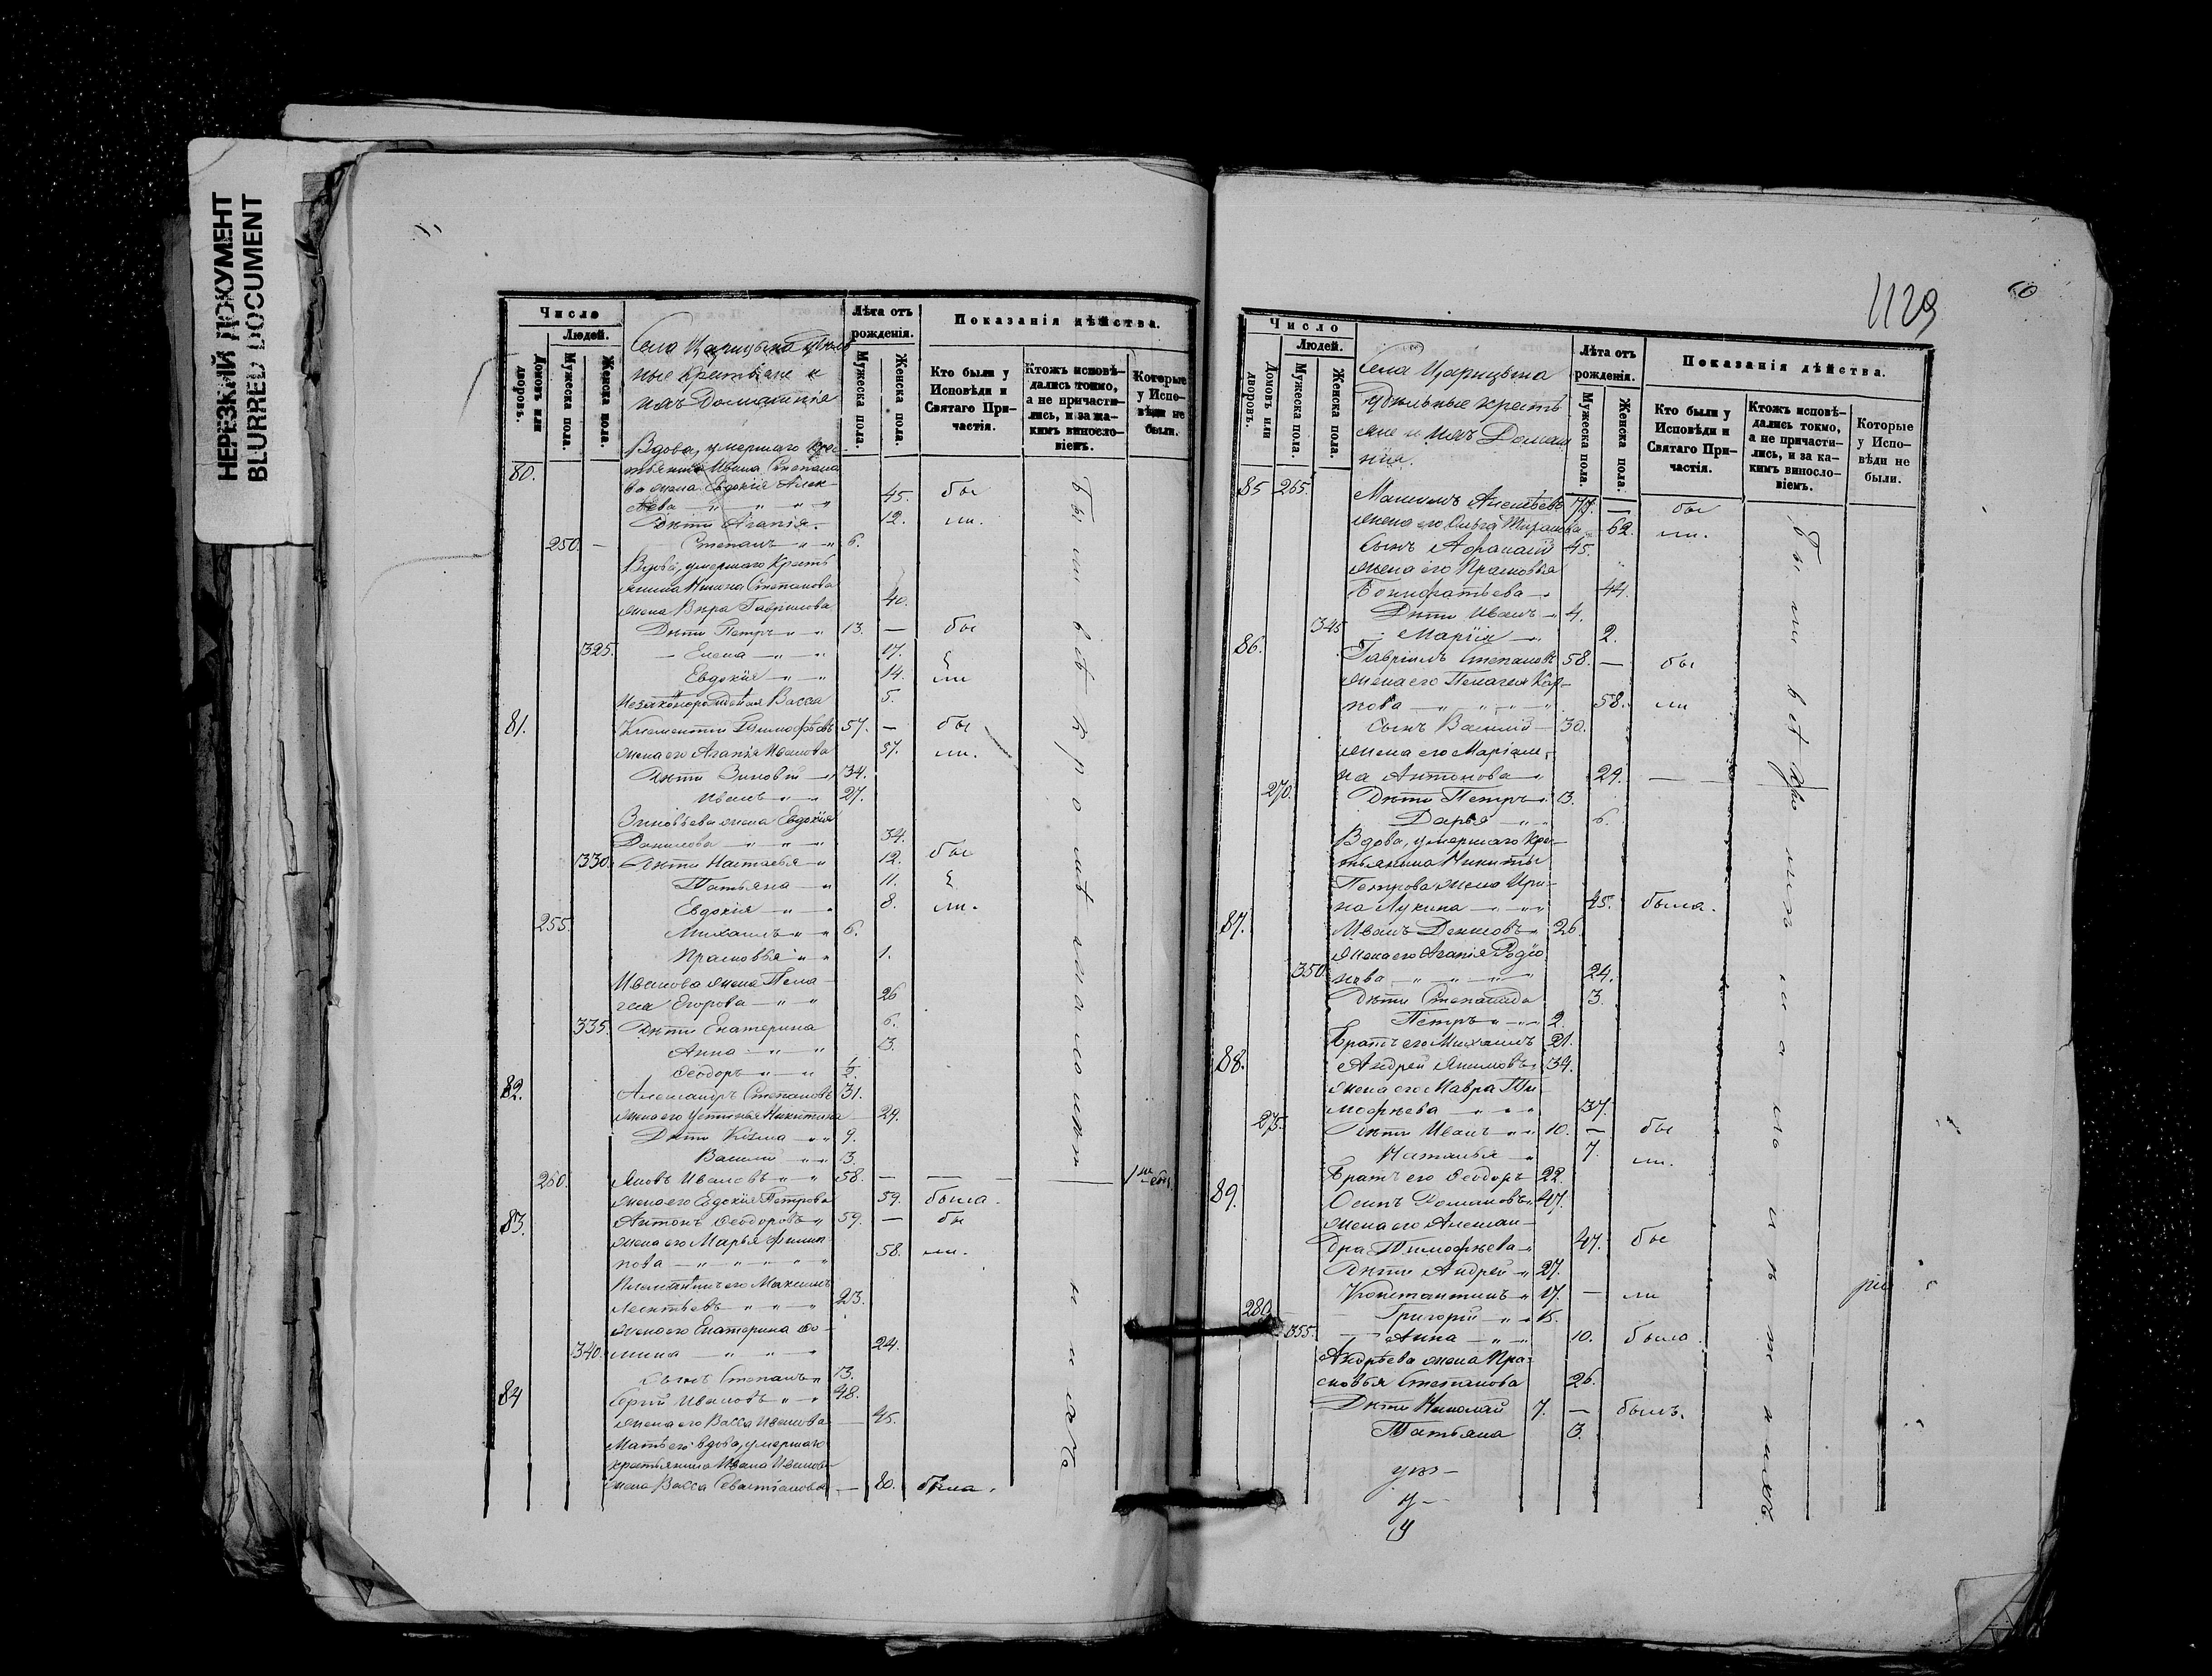 НЕРЕЗКИЙ ДОКУМЕНТ
BLURRED DOCUMENT
Число
Людей.
Домовъ или дворовъ.
Мужеска пола.
Женска пола.
Лѣта отъ рожденія.
Мужеска пола.
Женска пола.
Показанія дѣйства.
Кто были у Исповѣди и Святаго Причастія.
Ктожъ исповѣдались токмо, а не причастились, и за какимъ винословіемъ.
Которые у Исповѣди не были.
Села Царицына удѣль
ные крестьяне и
ихъ Домашнія
80. Вдова, умершаго крес-
тьянина Ивана Степано
ва жена Евдокія Алек-
сѣева 45. бы
Дѣти Агапія 12. ли.
250. Степанъ 6.
Вдова, умершаго Кресть
янина Степанова
жена Вѣра Гаврилова 40.
Дѣти Петръ 13. — бы
325. Елена 17.
Евдокія 14. ли
Незаконорожденая Васса 5.
81. Климентій Тимофѣевъ 57. — бы
жена его Агапія Иванова 57. ли.
Дѣти Зиновій 34.
Иванъ 27.
Зиновьева жена Евдокія
Данилова 34.
330. Дѣти Настасья 12. бы
Татьяна 11.
Евдокія 8. ли.
255. Михаилъ 6.
Прасковья 1.
Иванова жена Пела-
гея Егорова 26
335. Дѣти Екатерина 6.
Анна 3.
Ѳеодоръ ½.
82. Александръ Степановъ 31.
жена его Устинья Никитина 29.
Дѣти Козма 9.
Василій 3.
260. Яковъ Ивановъ 58. — —
жена его Евдокія Петрова 59. была.
83. Антонъ Ѳеодоровъ 59. — бы
жена его Марья Филип-
пова 58. ли.
Племянникъ его Максимъ
Леонтьевъ 23.
жена его Екатерина Ѳо-
340. мина 24.
Сынъ Степанъ 3.
84 Сергій Ивановъ 48.
жена его Васса Иванова 45.
Мать его вдова, умершаго
крестьянина Ивана Иванова
жена Васса Севастіанова — 80. была.
1129
60
Число
Людей.
Домовъ или дворовъ.
Мужеска пола.
Женска пола.
Лѣта отъ рожденія.
Мужеска пола.
Женска пола.
Показанія дѣйства.
Кто были у Исповѣди и Святаго Причастія.
Ктожъ исповѣдались токмо, а не причастились, и за какимъ винословіемъ.
Которые у Исповѣди не были.
Села Царицына
Удѣльные кресть
яне и ихъ Домаш
нія.
85 265. Алексѣевъ 77. — бы
жена его Ольга 62. ли.
Сынъ Афанасій 45.
жена его Прасковья
Бонифатьева 44.
Дѣти Иванъ 4.
345 Марія 2.
86. Гавріилъ Степановъ 58. — бы
жена его Пелагея Кар-
пова 58. ли
Сынъ Василій 30.
жена его Маріан-
на Антонова 29. —
270. Дѣти Петръ 3.
Дарья 6.
Вдова, умершаго Кре-
стьянина Никиты
Петрова жена Ири-
на Лукина 45. была.
87. Иванъ Денисовъ 26.
жена его Агапія Родіо
350. нова 24.
Дѣти Степанида 3.
Петръ 2.
Братъ его Михаилъ 21.
88. Андрей Якимовъ 34.
жена его Мавра Ти
мофѣева 37.
275. Дѣти Иванъ 10. — бы
Наталья 7. ли.
Братъ его Ѳеодоръ 22.
89. Осипъ Романовъ 47.
жена его Алексан-
дра Тимофѣева 47. бы
Дѣти Андрей 27.
Константинъ 17. — ли
280. Григорій 15.
355. Анна 10. была.
Андрѣева жена Пра-
сковья Степанова 26.
Дѣти Николай 7. — былъ.
Татьяна 3.